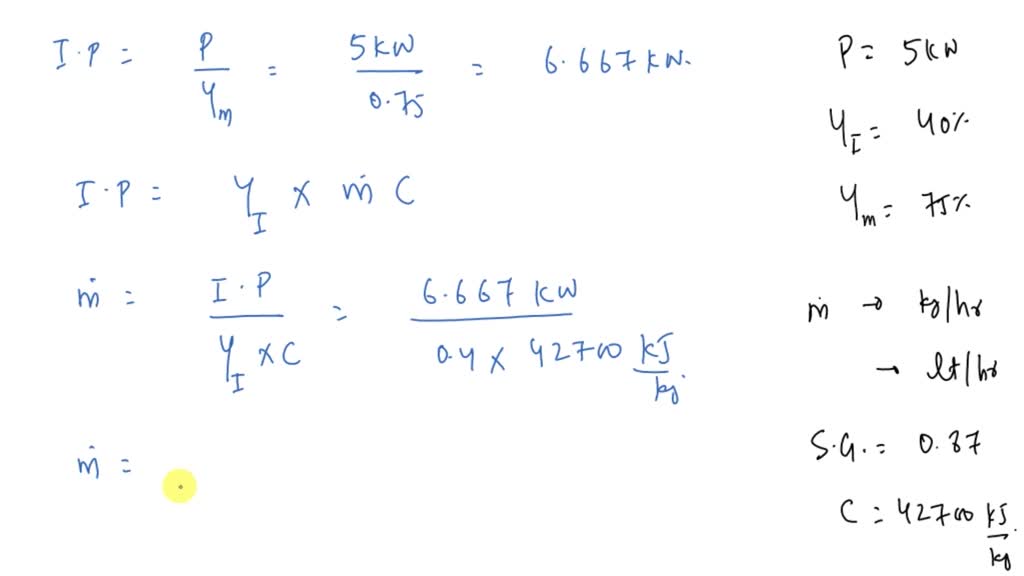 I.P = P / η_m = 5 kW / 0.75 = 6.667 kW.
I.P = η_I × ṁ C
ṁ = I.P / η_I × C = 6.667 kW / 0.4 × 42700 kJ/kg
ṁ =
P = 5 kW
η_I = 40%
η_m = 75%
ṁ → kg/hr
→ lt/hr
S.G. = 0.87
C = 42700 kJ/kg.